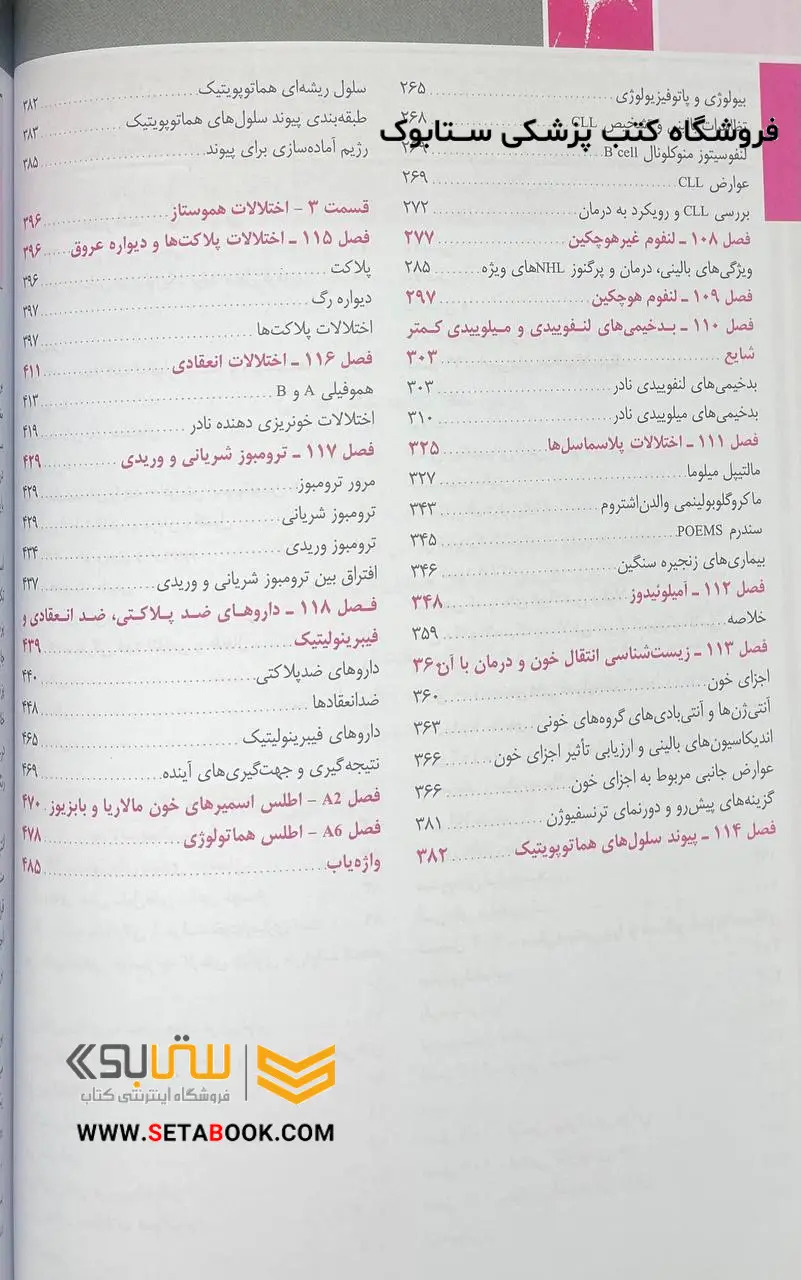 فروشگاه کتب پزشکی ستابوک
بیولوژی و پاتوفیزیولوژی ۲۶۵
CLL ۲۶۸
لنفوسیتوز منوکلونال B cell ۲۶۹
عوارض CLL ۲۶۹
بررسی CLL و رویکرد به درمان ۲۷۲
فصل ۱۰۸ ـ لنفوم غیرهوچکین ۲۷۷
ویژگی‌های بالینی، درمان و پرگنوز NHLهای ویژه ۲۸۵
فصل ۱۰۹ ـ لنفوم هوچکین ۲۹۷
فصل ۱۱۰ ـ بدخیمی‌های لنفوییدی و میلوییدی کمتر
شایع ۳۰۳
بدخیمی‌های لنفوییدی نادر ۳۰۳
بدخیمی‌های میلوییدی نادر ۳۱۰
فصل ۱۱۱ ـ اختلالات پلاسماسل‌ها ۳۲۵
مالتیپل میلوما ۳۲۷
ماکروگلوبولینمی والدن‌اشتروم ۳۴۳
سندرم POEMS ۳۴۵
بیماری‌های زنجیره سنگین ۳۴۶
فصل ۱۱۲ ـ آمیلوئیدوز ۳۴۸
خلاصه ۳۵۹
فصل ۱۱۳ ـ زیست‌شناسی انتقال خون و درمان با آن ۳۶۰
اجزای خون ۳۶۰
آنتی‌ژن‌ها و آنتی‌بادی‌های گروه‌های خونی ۳۶۳
اندیکاسیون‌های بالینی و ارزیابی تأثیر اجزای خون ۳۶۶
عوارض جانبی مربوط به اجزای خون ۳۶۶
گزینه‌های پیش‌رو و دورنمای ترنسفیوژن ۳۸۱
فصل ۱۱۴ ـ پیوند سلول‌های هماتوپویتیک ۳۸۲
سلول ریشه‌ای هماتوپویتیک ۳۸۲
طبقه‌بندی پیوند سلول‌های هماتوپویتیک ۳۸۳
رژیم آماده‌سازی برای پیوند ۳۸۵
قسمت ۳ - اختلالات هموستاز ۳۹۶
فصل ۱۱۵ ـ اختلالات پلاکت‌ها و دیواره عروق ۳۹۶
پلاکت ۳۹۶
دیواره رگ ۳۹۷
اختلالات پلاکت‌ها ۳۹۷
فصل ۱۱۶ ـ اختلالات انعقادی ۴۱۱
هموفیلی A و B ۴۱۳
اختلالات خونریزی دهنده نادر ۴۱۹
فصل ۱۱۷ ـ ترومبوز شریانی و وریدی ۴۲۹
مرور ترومبوز ۴۲۹
ترومبوز شریانی ۴۲۹
ترومبوز وریدی ۴۳۴
افتراق بین ترومبوز شریانی و وریدی ۴۳۷
فصل ۱۱۸ ـ داروهای ضد پلاکتی، ضد انعقادی و
فیبرینولیتیک ۴۳۹
داروهای ضدپلاکتی ۴۴۰
ضدانعقادها ۴۴۸
داروهای فیبرینولیتیک ۴۶۵
نتیجه‌گیری و جهت‌گیری‌های آینده ۴۶۹
فصل A2 - اطلس اسمیرهای خون مالاریا و بابزیوز ۴۷۰
فصل A6 - اطلس هماتولوژی ۴۷۸
واژه‌یاب ۴۸۵
ستابوک
فروشگاه اینترنتی کتاب
WWW.SETABOOK.COM